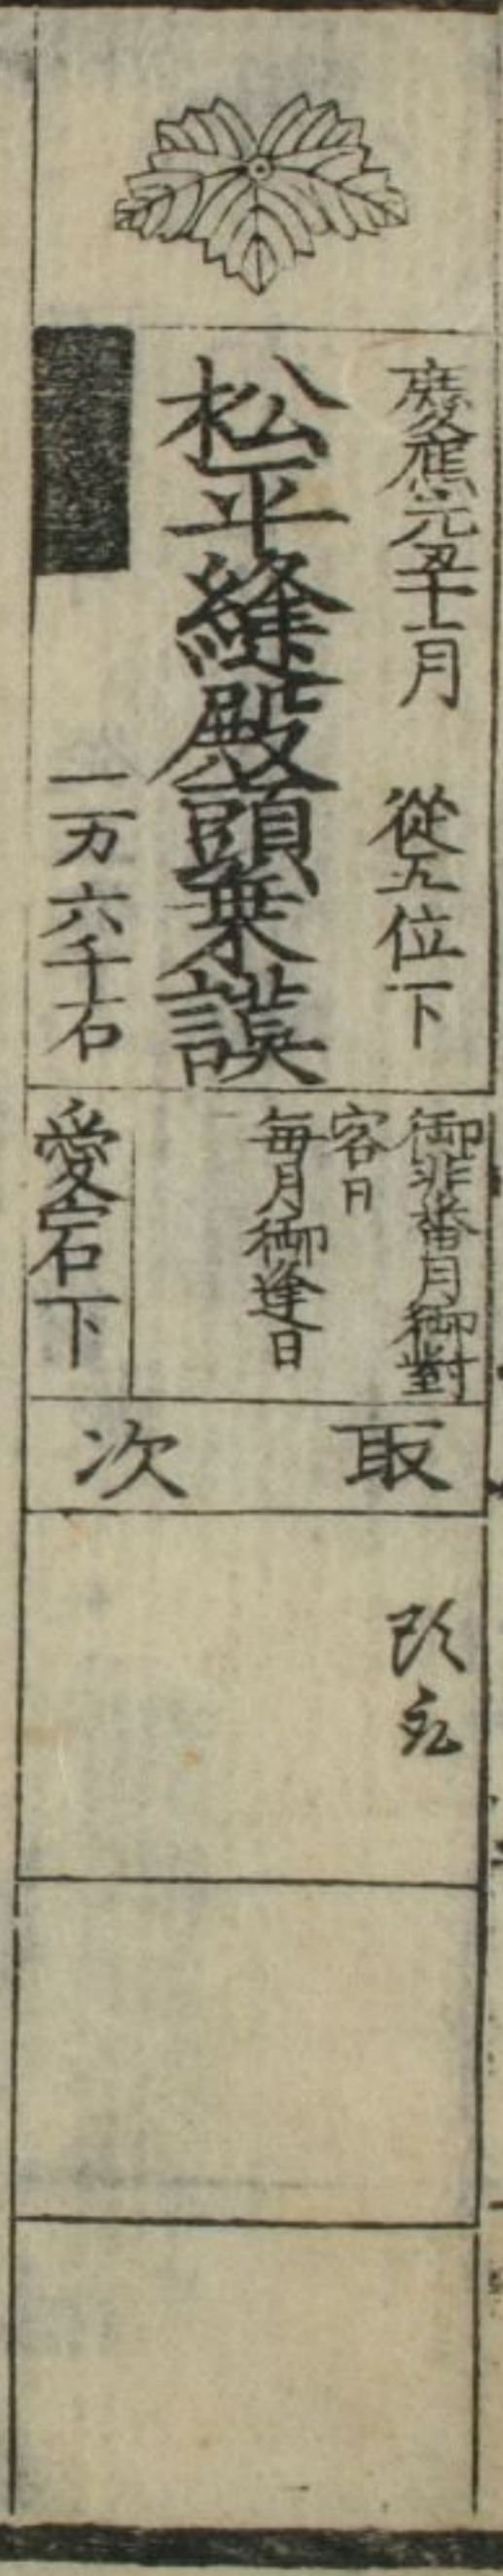 慶應元丑十二月　從五位下
松平縫殿頭乗謨
一万六千石
御非番月御對
客日
毎月御逢日
愛宕下
取次